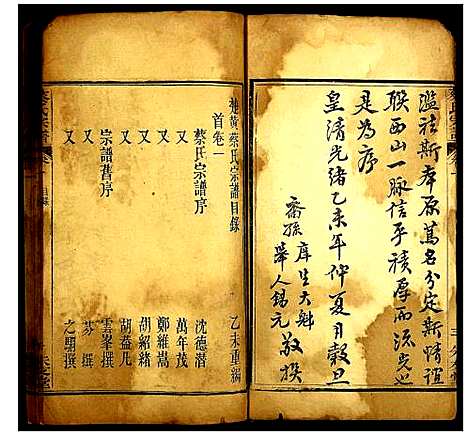 濫社斯本原萬名分定斯情誼
聯西山一脉信乎積厚而流光也
是為序
皇清光緒乙未年仲夏月穀旦
裔孫庠生大魁
舉人錫元敬撰
楚黃蔡氏宗譜目錄 乙未重編
首卷一
蔡氏宗譜序 沈德潛
又 萬年茂
又 鄭維嵩
又 胡紹緒
又 胡益凡
宗譜舊序 雲峯撰
又 芬撰
又 之翺撰